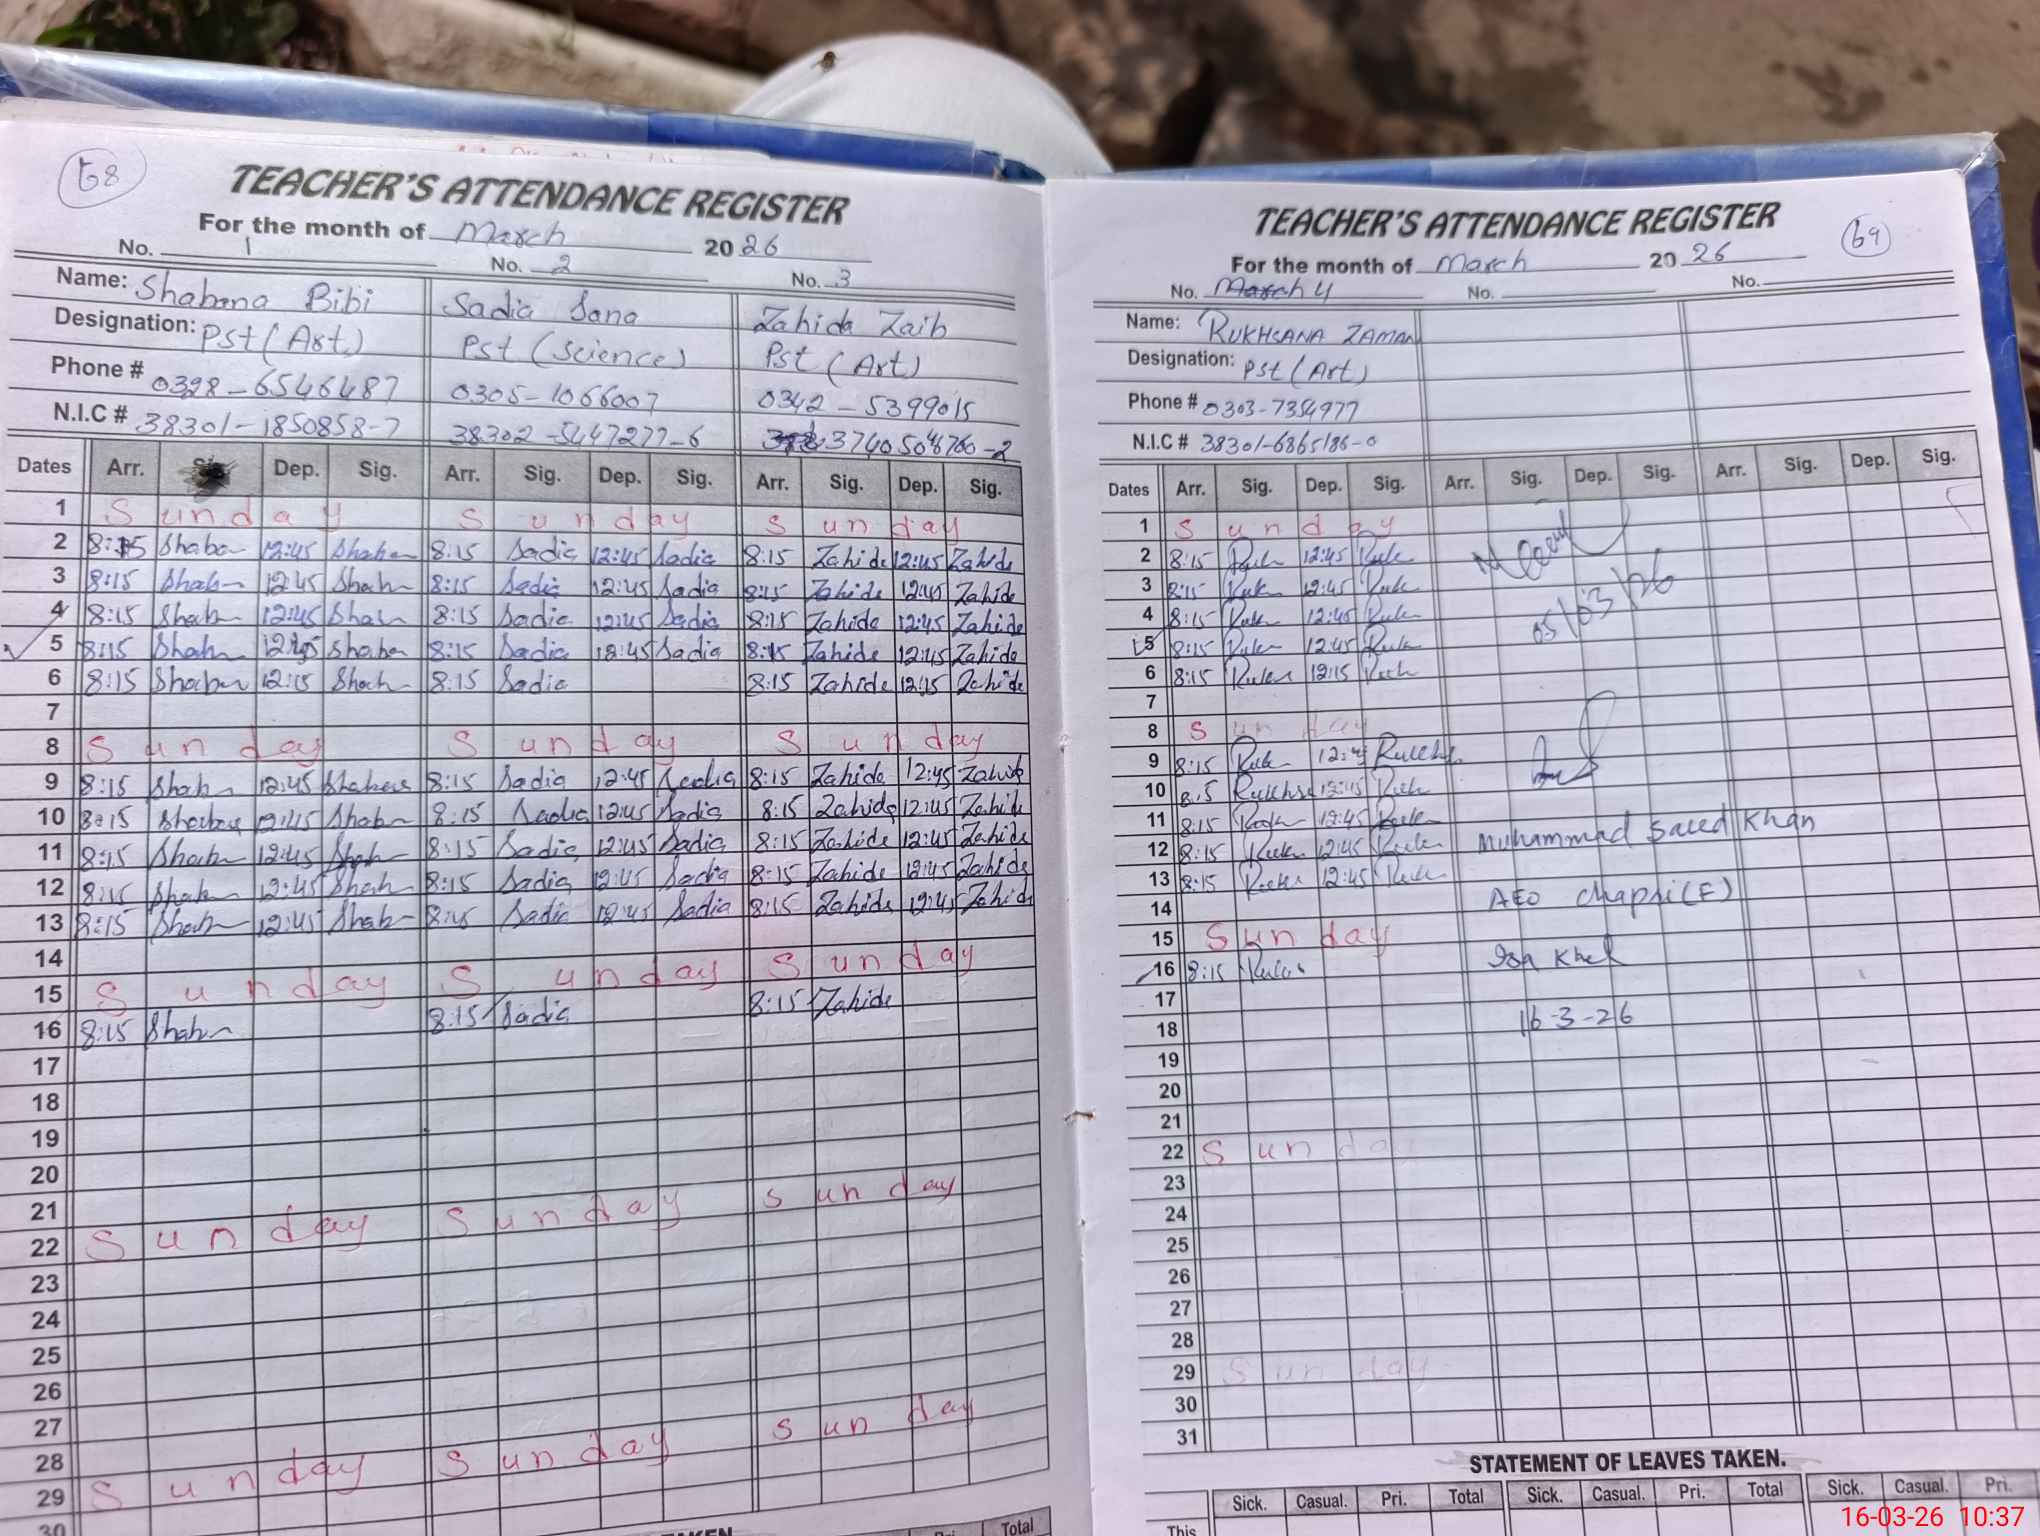 68
TEACHER'S ATTENDANCE REGISTER
For the month of March 2026
No. 1 No. 2 No. 3
Name: Shabana Bibi Sadia Sana Zahida Zaib
Designation: Pst (Art) Pst (Science) Pst (Art)
Phone # 0328-6546487 0305-1066007 0342-5399015
N.I.C # 38301-1850858-7 38302-5447277-6
Dates Arr. Dep. Sig. Arr. Sig. Dep. Sig. Arr. Sig. Dep. Sig.
1 Sunday Sunday Sunday
2 8:15 Shaban 12:45 Shaban 8:15 Sadia 12:45 Sadia 8:15 Zahida 12:45 Zahida
3 8:15 Shaban 12:45 Shaban 8:15 Sadia 12:45 Sadia 8:15 Zahida 12:45 Zahida
4 8:15 Shaban 12:45 Shaban 8:15 Sadia 12:45 Sadia 8:15 Zahida 12:45 Zahida
5 8:15 Shaban 12:45 Shaban 8:15 Sadia 12:45 Sadia 8:15 Zahida 12:45 Zahida
6 8:15 Shaban 12:15 Shaban 8:15 Sadia 8:15 Zahida 12:15 Zahida
7
8 Sunday Sunday Sunday
9 8:15 Shaban 12:45 Shabana 8:15 Sadia 12:45 Sadia 8:15 Zahida 12:45 Zahida
10 8:15 Shabana 12:45 Shaban 8:15 Sadia 12:45 Sadia 8:15 Zahida 12:45 Zahida
11 8:15 Shaban 12:45 Shaban 8:15 Sadia 12:45 Sadia 8:15 Zahida 12:45 Zahida
12 8:15 Shaban 12:45 Shaban 8:15 Sadia 12:45 Sadia 8:15 Zahida 12:45 Zahida
13 8:15 Shaban 12:45 Shaban 8:15 Sadia 12:45 Sadia 8:15 Zahida 12:45 Zahida
14
15 Sunday Sunday Sunday
16 8:15 Shaban 8:15 Sadia 8:15 Zahida
17
18
19
20
21
22 Sunday Sunday Sunday
23
24
25
26
27
28
29 Sunday Sunday Sunday
30
Total
69
TEACHER'S ATTENDANCE REGISTER
For the month of March 2026
No. 4 No. No.
Name: RUKHSANA ZAMAN
Designation: Pst (Art)
Phone # 0303-7354977
N.I.C # 38301-6865186-0
Dates Arr. Sig. Dep. Sig. Arr. Sig. Dep. Sig. Arr. Sig. Dep. Sig.
1 Sunday
2 8:15 12:45
3 8:15 12:45
05/03/26
4 8:15 12:45
5 8:15 12:45
6 8:15 12:15
7
8 Sunday
9 8:15 12:45
10 8:15 12:45
11 8:15 12:45
Muhammad Saeed Khan
12 8:15 12:45
13 8:15 12:45
AEO Chapri (F)
14
15 Sunday
16 8:15
Isa Khel
17
16-3-26
18
19
20
21
22 Sunday
23
24
25
26
27
28
29 Sunday
30
31
STATEMENT OF LEAVES TAKEN.
Sick. Casual. Pri. Total Sick. Casual. Pri. Total Sick. Casual. Pri.
This
16-03-26 10:37